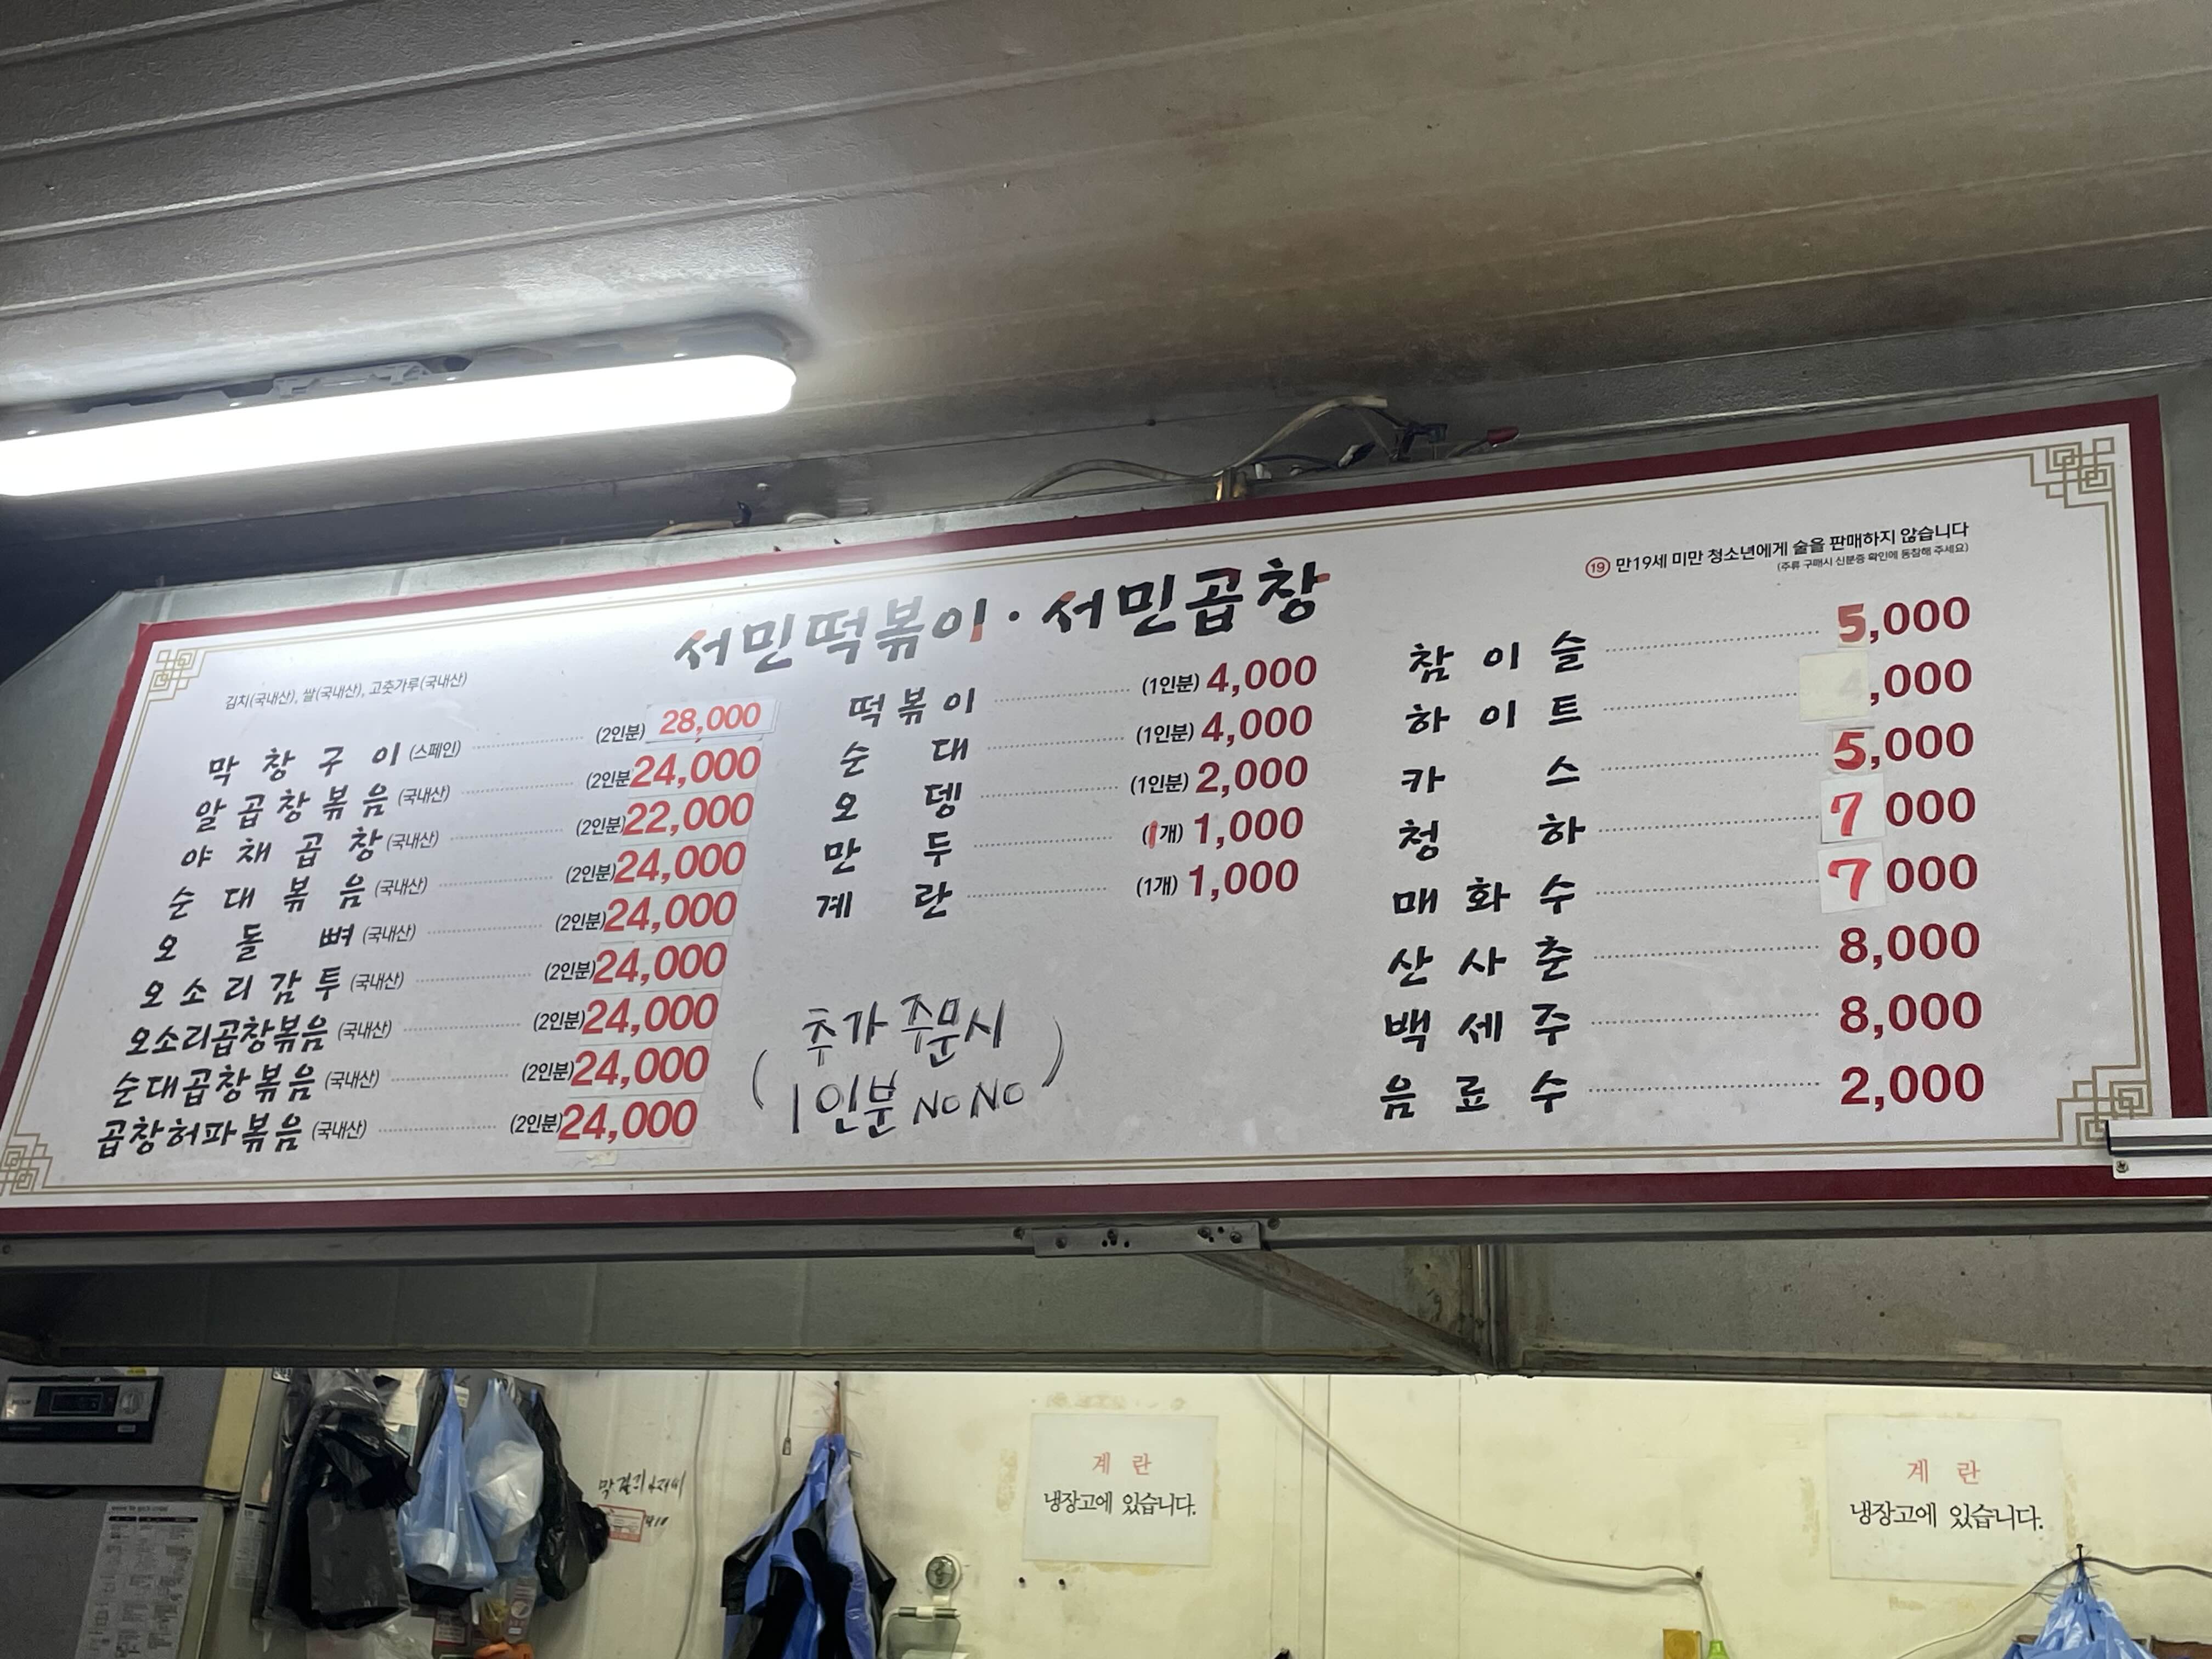 서민떡볶이·서민곱창
⑲ 만19세 미만 청소년에게 술을 판매하지 않습니다
(주류 구매시 신분증 확인에 동참해 주세요)
김치(국내산), 쌀(국내산), 고춧가루(국내산)
막창구이(스페인) (2인분) 28,000
알곱창볶음(국내산) (2인분) 24,000
야채곱창(국내산) (2인분) 22,000
순대볶음(국내산) (2인분) 24,000
오돌뼈(국내산) (2인분) 24,000
오소리감투(국내산) (2인분) 24,000
오소리곱창볶음(국내산) (2인분) 24,000
순대곱창볶음(국내산) (2인분) 24,000
곱창허파볶음(국내산) (2인분) 24,000
떡볶이 (1인분) 4,000
순대 (1인분) 4,000
오뎅 (1인분) 2,000
만두 (1개) 1,000
계란 (1개) 1,000
(추가 주문시
1인분 NO NO)
참이슬 5,000
하이트 ,000
카스 5,000
청하 7 000
매화수 7 000
산사춘 8,000
백세주 8,000
음료수 2,000
계란
냉장고에 있습니다.
계란
냉장고에 있습니다.